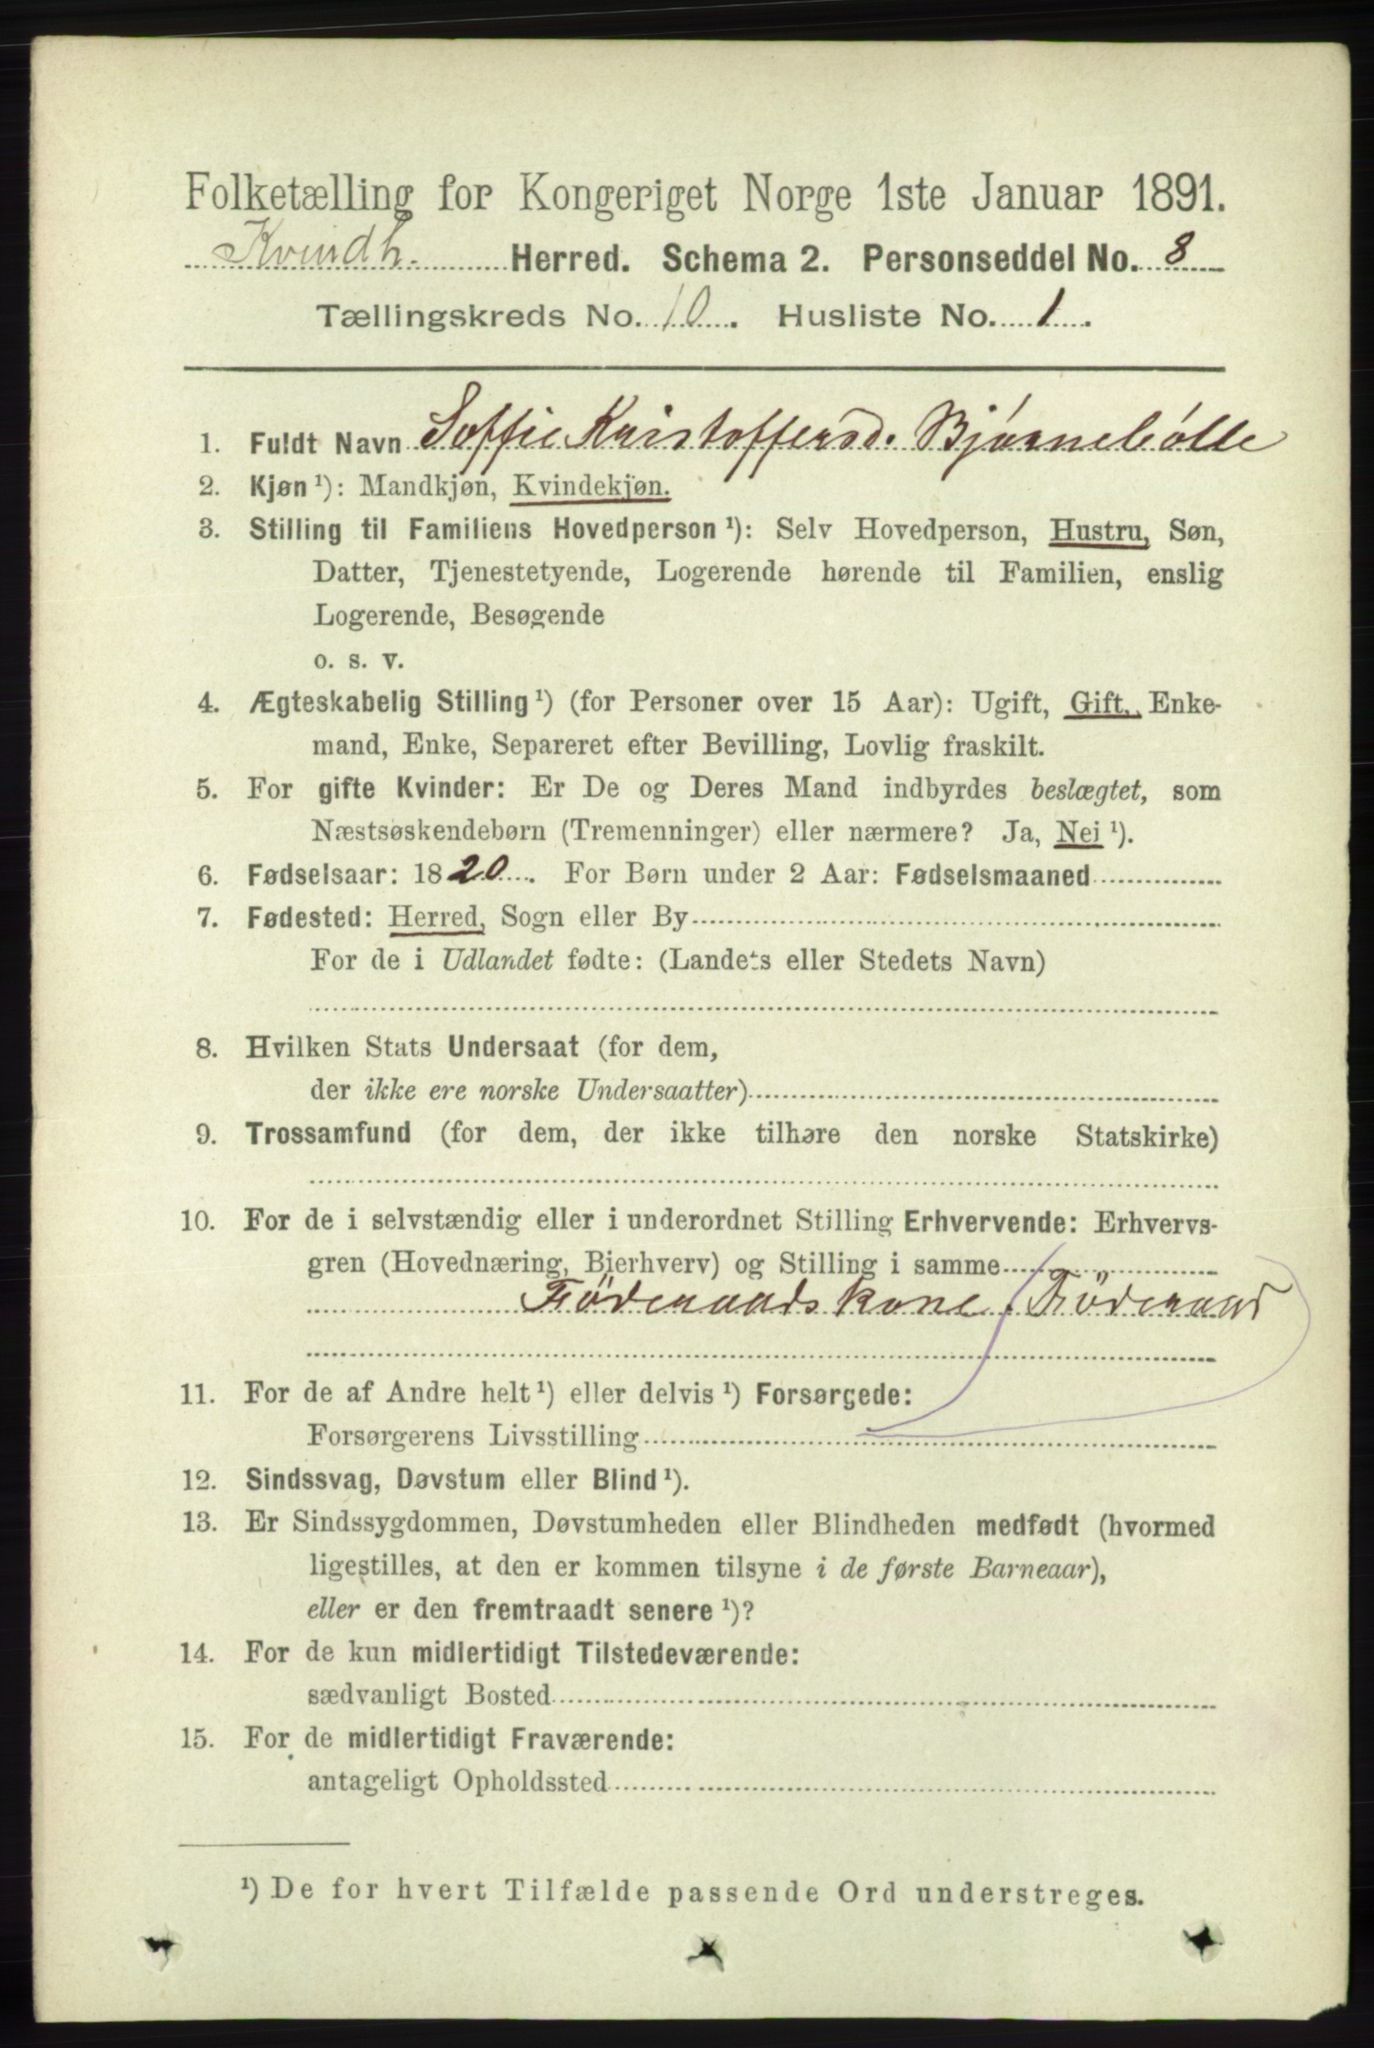 Folketælling for Kongeriget Norge 1ste Januar 1891.
Kvindh. Herred. Schema 2. Personseddel No. 8
Tællingskreds No. 10. Husliste No. 1.
1. Fuldt Navn Soffie Kristoffersd. Bjørnebølle
2. Kjøn ¹): Mandkjøn, Kvindekjøn.
3. Stilling til Familiens Hovedperson ¹): Selv Hovedperson, Hustru, Søn,
Datter, Tjenestetyende, Logerende hørende til Familien, enslig
Logerende, Besøgende
o. s. v.
4. Ægteskabelig Stilling ¹) (for Personer over 15 Aar): Ugift, Gift, Enke-
mand, Enke, Separeret efter Bevilling, Lovlig fraskilt.
5. For gifte Kvinder: Er De og Deres Mand indbyrdes beslægtet, som
Næstsøskendebørn (Tremenninger) eller nærmere? Ja, Nei ¹).
6. Fødselsaar: 1820. For Børn under 2 Aar: Fødselsmaaned
7. Fødested: Herred, Sogn eller By
For de i Udlandet fødte: (Landets eller Stedets Navn)
8. Hvilken Stats Undersaat (for dem,
der ikke ere norske Undersaatter)
9. Trossamfund (for dem, der ikke tilhøre den norske Statskirke)
10. For de i selvstændig eller i underordnet Stilling Erhvervende: Erhvervs-
gren (Hovednæring, Bierhverv) og Stilling i samme
Føderaadskone. Føderaad
11. For de af Andre helt ¹) eller delvis ¹) Forsørgede:
Forsørgerens Livsstilling
12. Sindssvag, Døvstum eller Blind ¹).
13. Er Sindssygdommen, Døvstumheden eller Blindheden medfødt (hvormed
ligestilles, at den er kommen tilsyne i de første Barneaar),
eller er den fremtraadt senere ¹)?
14. For de kun midlertidigt Tilstedeværende:
sædvanligt Bosted
15. For de midlertidigt Fraværende:
antageligt Opholdssted
¹) De for hvert Tilfælde passende Ord understreges.